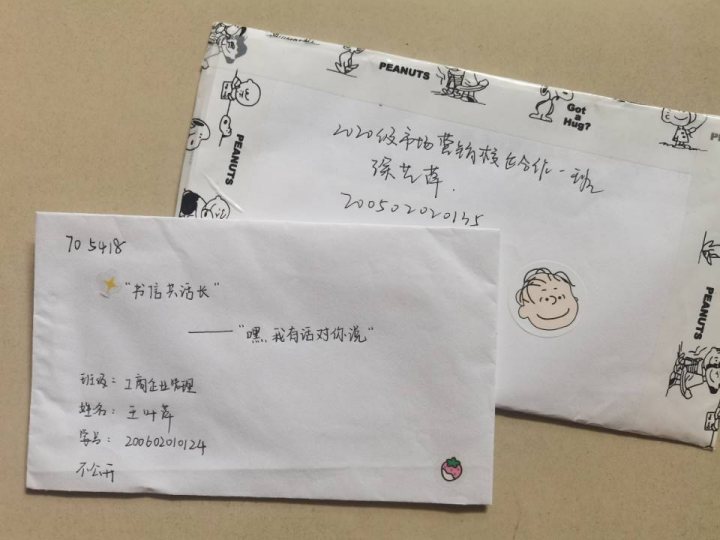 PEANUTS
Got
a
Hug?
PEANUTS
2020级市场营销校企合作一班
徐艺萍.
200502020135
PEANUTS
70 5418
"书信共话长"
——"嘿,我有话对你说"
班级: 工商企业管理
姓名: 王叶萍
学号: 200602010124
不公开